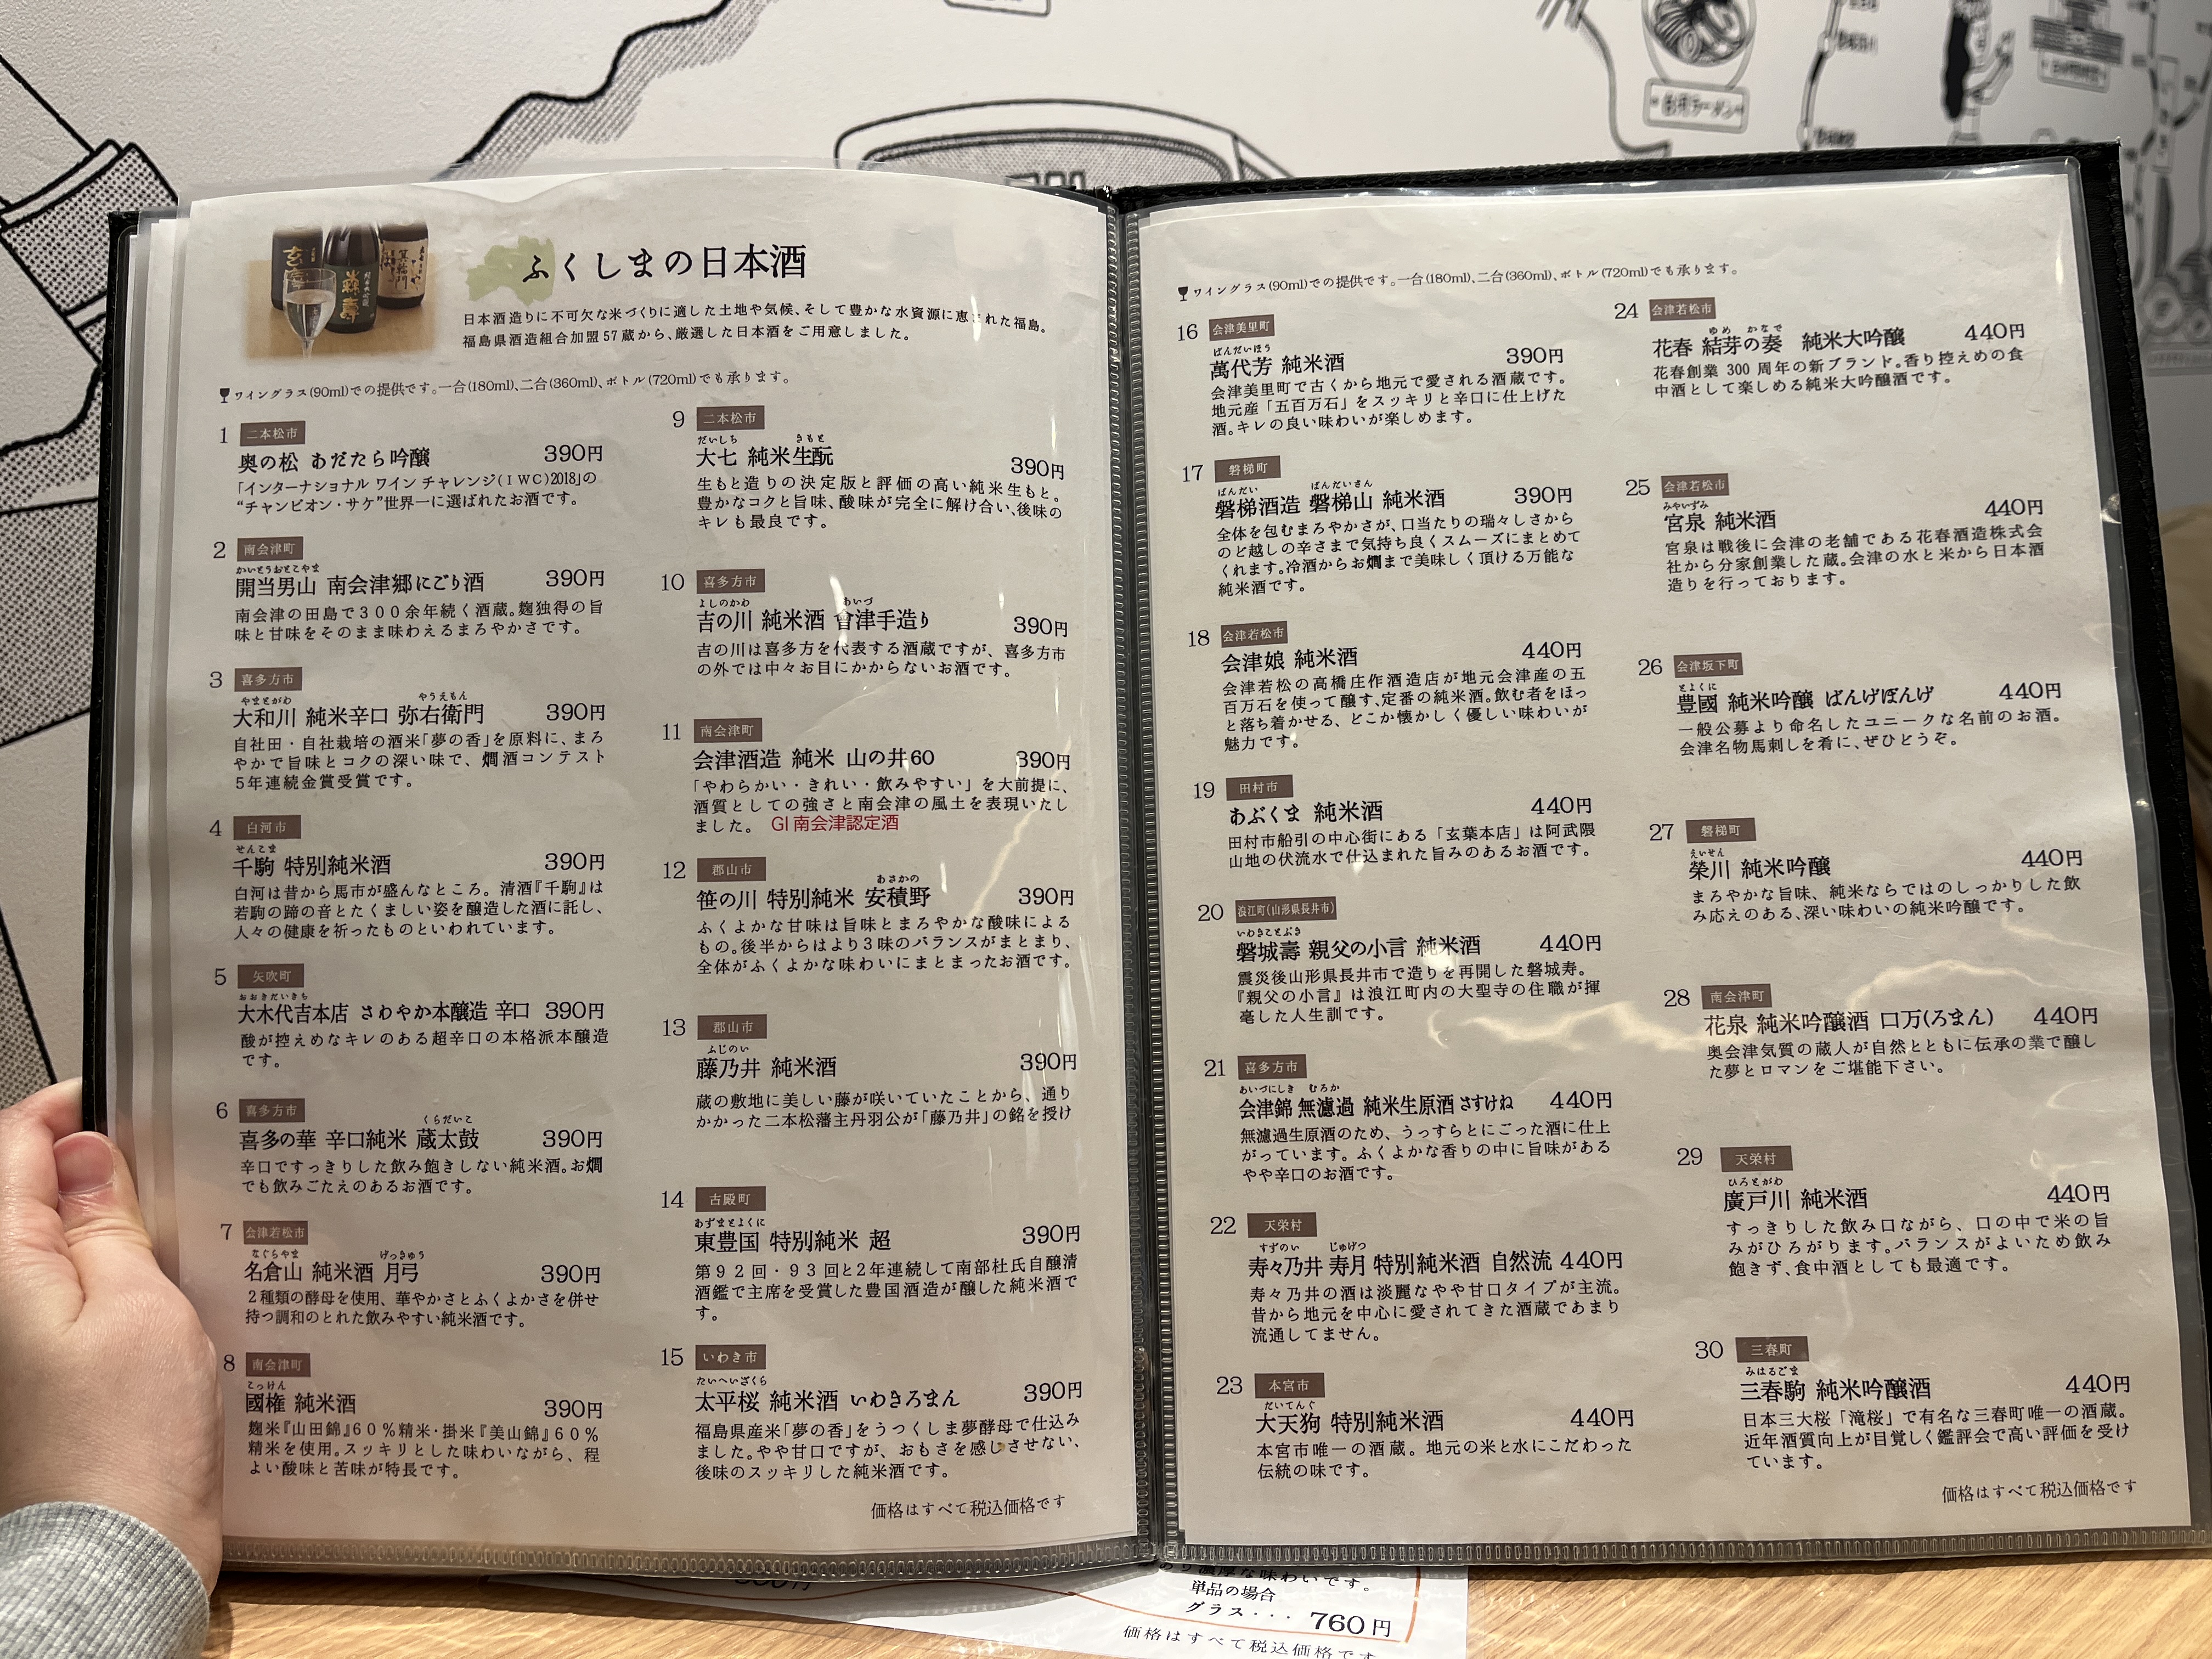 ふくしまの日本酒
日本酒造りに不可欠な米づくりに適した土地や気候、そして豊かな水資源に恵まれた福島。
福島県酒造組合加盟57蔵から、厳選した日本酒をご用意しました。
ワイングラス(90ml)での提供です。一合(180ml)、二合(360ml)、ボトル(720ml)でも承ります。
1 二本松市
奥の松 あだたら吟醸 390円
「インターナショナル ワイン チャレンジ(IWC)2018」の
“チャンピオン・サケ”世界一に選ばれたお酒です。
2 南会津町
かいとうおとこやま
開当男山 南会津郷にごり酒 390円
南会津の田島で300余年続く酒蔵。麹独得の旨
味と甘味をそのまま味わえるまろやかさです。
3 喜多方市
やまとがわ やうえもん
大和川 純米辛口 弥右衛門 390円
自社田・自社栽培の酒米「夢の香」を原料に、まろ
やかで旨味とコクの深い味で、燗酒コンテスト
5年連続金賞受賞です。
4 白河市
せんこま
千駒 特別純米酒 390円
白河は昔から馬市が盛んなところ。清酒『千駒』は
若駒の蹄の音とたくましい姿を醸造した酒に託し、
人々の健康を祈ったものといわれています。
5 矢吹町
おおきだいきち
大木代吉本店 さわやか本醸造 辛口 390円
酸が控えめなキレのある超辛口の本格派本醸造
です。
6 喜多方市
くらだいこ
喜多の華 辛口純米 蔵太鼓 390円
辛口ですっきりした飲み飽きしない純米酒。お燗
でも飲みごたえのあるお酒です。
7 会津若松市
なぐらやま げっきゅう
名倉山 純米酒 月弓 390円
2種類の酵母を使用、華やかさとふくよかさを併せ
持つ調和のとれた飲みやすい純米酒です。
8 南会津町
こっけん
國権 純米酒 390円
麹米『山田錦』60%精米・掛米『美山錦』60%
精米を使用。スッキリとした味わいながら、程
よい酸味と苦味が特長です。
9 二本松市
だいしち きもと
大七 純米生酛 390円
生もと造りの決定版と評価の高い純米生もと。
豊かなコクと旨味、酸味が完全に解け合い、後味の
キレも最良です。
10 喜多方市
よしのかわ あいづ
吉の川 純米酒 會津手造り 390円
吉の川は喜多方を代表する酒蔵ですが、喜多方市
の外では中々お目にかからないお酒です。
11 南会津町
会津酒造 純米 山の井60 390円
「やわらかい・きれい・飲みやすい」を大前提に、
酒質としての強さと南会津の風土を表現いたし
ました。 GI南会津認定酒
12 郡山市
あさかの
笹の川 特別純米 安積野 390円
ふくよかな甘味は旨味とまろやかな酸味による
もの。後半からはより3味のバランスがまとまり、
全体がふくよかな味わいにまとまったお酒です。
13 郡山市
ふじのい
藤乃井 純米酒 390円
蔵の敷地に美しい藤が咲いていたことから、通り
かかった二本松藩主丹羽公が「藤乃井」の銘を授け
14 古殿町
あずまとよくに
東豊国 特別純米 超 390円
第92回・93回と2年連続して南部杜氏自醸清
酒鑑で主席を受賞した豊国酒造が醸した純米酒で
す。
15 いわき市
たいへいざくら
太平桜 純米酒 いわきろまん 390円
福島県産米「夢の香」をうつくしま夢酵母で仕込み
ました。やや甘口ですが、おもさを感じさせない、
後味のスッキリした純米酒です。
価格はすべて税込価格です
ワイングラス(90ml)での提供です。一合(180ml)、二合(360ml)、ボトル(720ml)でも承ります。
16 会津美里町
ばんだいほう
萬代芳 純米酒 390円
会津美里町で古くから地元で愛される酒蔵です。
地元産「五百万石」をスッキリと辛口に仕上げた
酒。キレの良い味わいが楽しめます。
17 磐梯町
ばんだい ばんだいさん
磐梯酒造 磐梯山 純米酒 390円
全体を包むまろやかさが、口当たりの瑞々しさから
のど越しの辛さまで気持ち良くスムーズにまとめて
くれます。冷酒からお燗まで美味しく頂ける万能な
純米酒です。
18 会津若松市
会津娘 純米酒 440円
会津若松の高橋庄作酒造店が地元会津産の五
百万石を使って醸す、定番の純米酒。飲む者をほっ
と落ち着かせる、どこか懐かしく優しい味わいが
魅力です。
19 田村市
あぶくま 純米酒 440円
田村市船引の中心街にある「玄葉本店」は阿武隈
山地の伏流水で仕込まれた旨みのあるお酒です。
20 浪江町(山形県長井市)
いわきことぶき
磐城壽 親父の小言 純米酒 440円
震災後山形県長井市で造りを再開した磐城寿。
『親父の小言』は浪江町内の大聖寺の住職が揮
毫した人生訓です。
21 喜多方市
あいづにしき むろか
会津錦 無濾過 純米生原酒 さすけね 440円
無濾過生原酒のため、うっすらとにごった酒に仕上
がっています。ふくよかな香りの中に旨味がある
やや辛口のお酒です。
22 天栄村
すずのい じゅげつ
寿々乃井 寿月 特別純米酒 自然流 440円
寿々乃井の酒は淡麗なやや甘口タイプが主流。
昔から地元を中心に愛されてきた酒蔵であまり
流通してません。
23 本宮市
だいてんぐ
大天狗 特別純米酒 440円
本宮市唯一の酒蔵。地元の米と水にこだわった
伝統の味です。
24 会津若松市
ゆめ かなで
花春 結芽の奏 純米大吟醸 440円
花春創業 300 周年の新ブランド。香り控えめの食
中酒として楽しめる純米大吟醸酒です。
25 会津若松市
みやいずみ
宮泉 純米酒 440円
宮泉は戦後に会津の老舗である花春酒造株式会
社から分家創業した蔵。会津の水と米から日本酒
造りを行っております。
26 会津坂下町
とよくに
豊國 純米吟醸 ばんげぼんげ 440円
一般公募より命名したユニークな名前のお酒。
会津名物馬刺しを肴に、ぜひどうぞ。
27 磐梯町
えいせん
榮川 純米吟醸 440円
まろやかな旨味、純米ならではのしっかりした飲
み応えのある、深い味わいの純米吟醸です。
28 南会津町
花泉 純米吟醸酒 口万(ろまん) 440円
奥会津気質の蔵人が自然とともに伝承の業で醸し
た夢とロマンをご堪能下さい。
29 天栄村
ひろとがわ
廣戸川 純米酒 440円
すっきりした飲み口ながら、口の中で米の旨
みがひろがります。バランスがよいため飲み
飽きず、食中酒としても最適です。
30 三春町
みはるごま
三春駒 純米吟醸酒 440円
日本三大桜「滝桜」で有名な三春町唯一の酒蔵。
近年酒質向上が目覚しく鑑評会で高い評価を受け
ています。
価格はすべて税込価格です
濃厚な味わいです。
単品の場合
グラス・・・ 760円
価格はすべて税込価格です